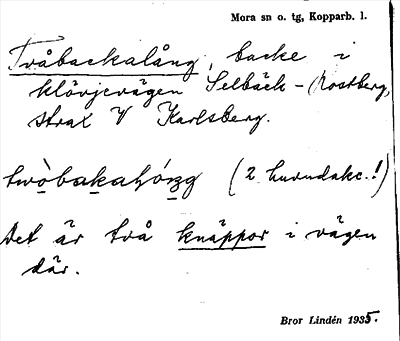 Mora sn o. tg, Kopparb. l.
Tvåbackalång, backe i
klövjevägen Selbäck - Rostberg,
strax V Karlsberg.
(2 huvudakc.!)
Det är två knäppor i vägen
där.
Bror Lindén 1935.